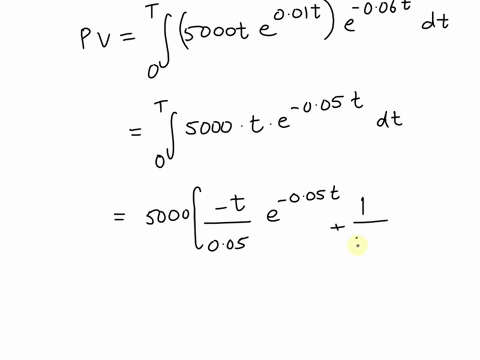 PV = ∫₀ᵀ (5000t e^{0.01t}) e^{-0.06t} dt
= ∫₀ᵀ 5000 · t · e^{-0.05t} dt
= 5000 [ \frac{-t}{0.05} e^{-0.05t} + \frac{1}{.}